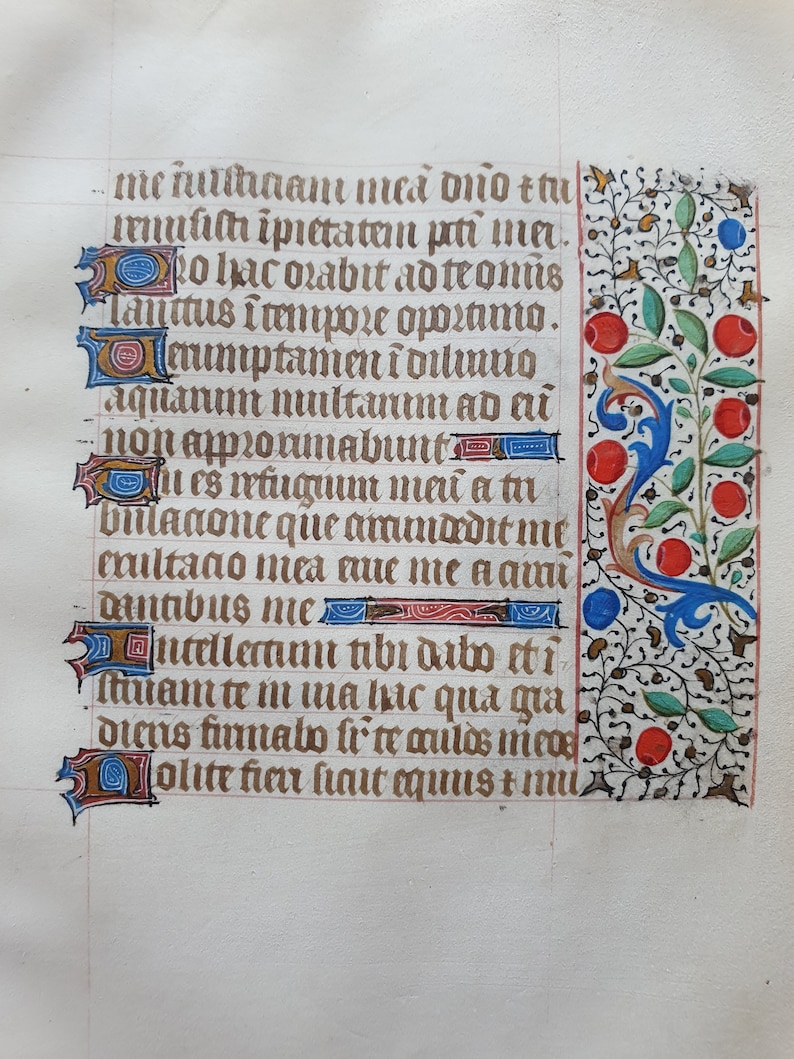 me īiusticiam meā dn̄o ⁊ tu
remisisti īpietatem pc̄ti mei.
Pro hac orabit ad te omīs
sanctus ī tempore oportuno.
Verumptamen ī diluuio
aquarum multarum ad eū
non approximabunt
Tu es refugium meū a tri
bulacione que circumdedit me
exultacio mea erue me a circū
dantibus me
Intellectum tibi dabo et ī
struam te in uia hac qua gra
dieris firmabo sr̄ te oculos meos
Nolite fieri sicut equus ⁊ mul